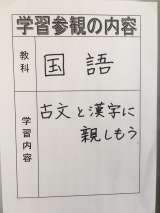 学習参観の内容
教科
国語
学習内容
古文と漢字に
親しもう